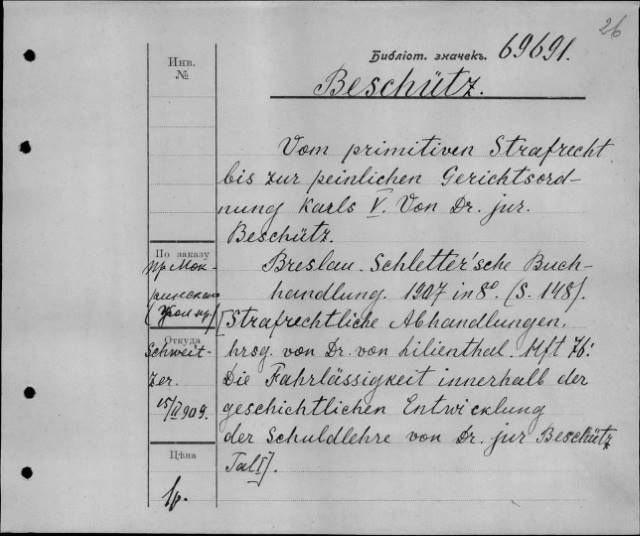 26
Библіот. значекъ. 69691.
Beschütz.
Инв.
№
Vom primitiven Strafrecht
bis zur peinlichen Gerichtsord-
nung Karls V. Von Dr. jur.
Beschütz.
Breslau. Schletter'sche Buch-
handlung. 1907 in 8º. (S. 148).
[Strafrechtliche Abhandlungen,
hrsg. von Dr. von Lilienthal. Hft 76:
Die Fahrlässigkeit innerhalb der
geschichtlichen Entwicklung
der Schuldlehre von Dr. jur Beschütz
Tal I].
По заказу
пр. Мок-
ринскаго
Откуда
Schweit-
zer.
15/II 909.
Цѣна
1р.